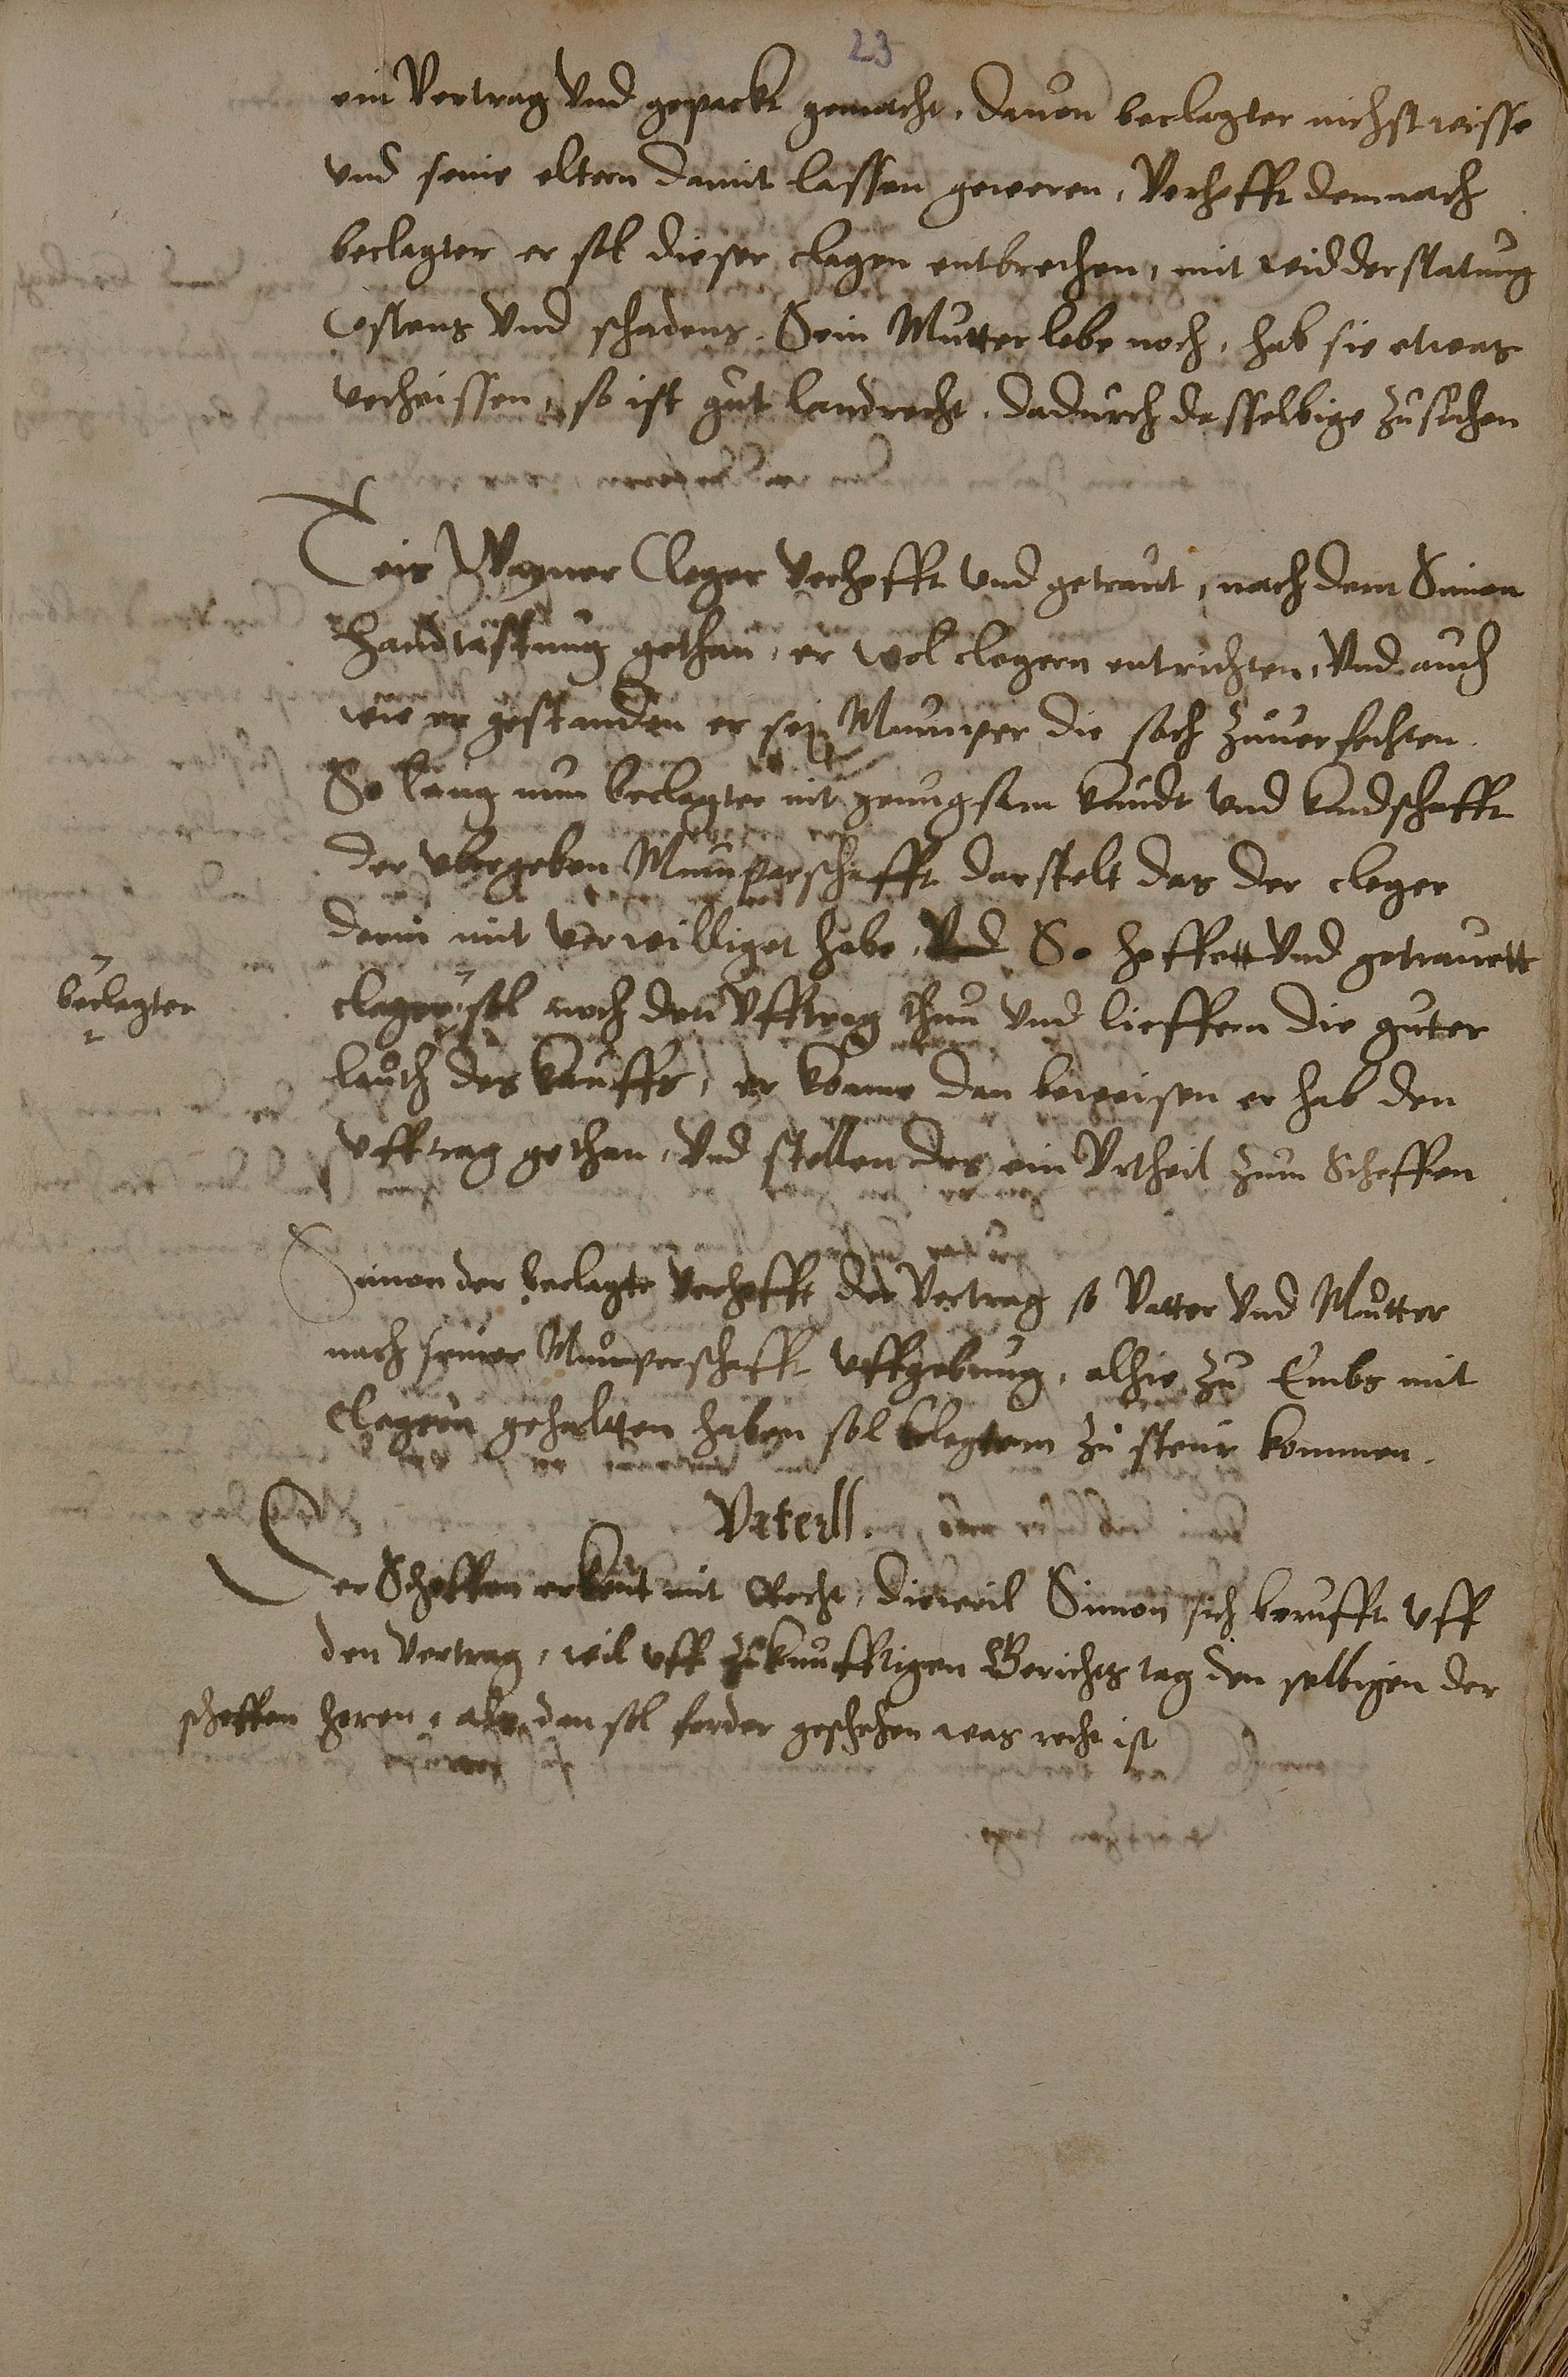 23
ein Vertrag vnd gepackt gemacht, dauon beclagter nichst wisse
vnd seine eltern damit lassen geweren, Verhofft demnach
beclagter er sol dieser clagen entbrechen, mit widderstatung
Costens vnd schadens. Sein Mutter lebe noch, hab sie etwas
verheissen, so ist gut landrecht, dadurch dasselbige zusuchen
Teis Wagner Cleger verhofft vnd getraut, nach dem Simon
handtastung gethan, er wol clegern entrichten, Vnd auch
wie er gestanden er sej Mumper die sach zuuerfechten.
So lang nun beclagter nit genugsam kundt vnd kundschafft
der vbergeben Mumparschafft darstelt das der cleger
darin mit verwilliget habe, Vnd So hoffett vnd getrauett
cleger sol noch den Vfftrag thun vnd lieffern die guter
beclagter
lauth des kauffs, er konne dan beweisen er hab den
vfftrag gethan, Vnd stellen des ein Vrtheil zum Scheffen
Simon der beclagte verhofft der Vertrag so Vatter vnd Mutter
nach seiner Mumperschafft vffgebung, alhie zu Embs mit
Clagern gehaltten haben sol clegtern zu steur kommen.
Vrteill.
Der Scheffen erkent mit Recht, dieweil Simon sich berufft vff
den Vertrag, wil vff zukunfftigen Gerichts tag den selbigen der
scheffen horen, als dan sol forder geschehen was recht ist